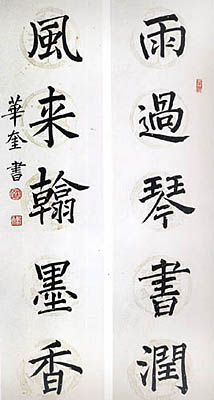 雨過琴書潤
風来翰墨香
華奎書